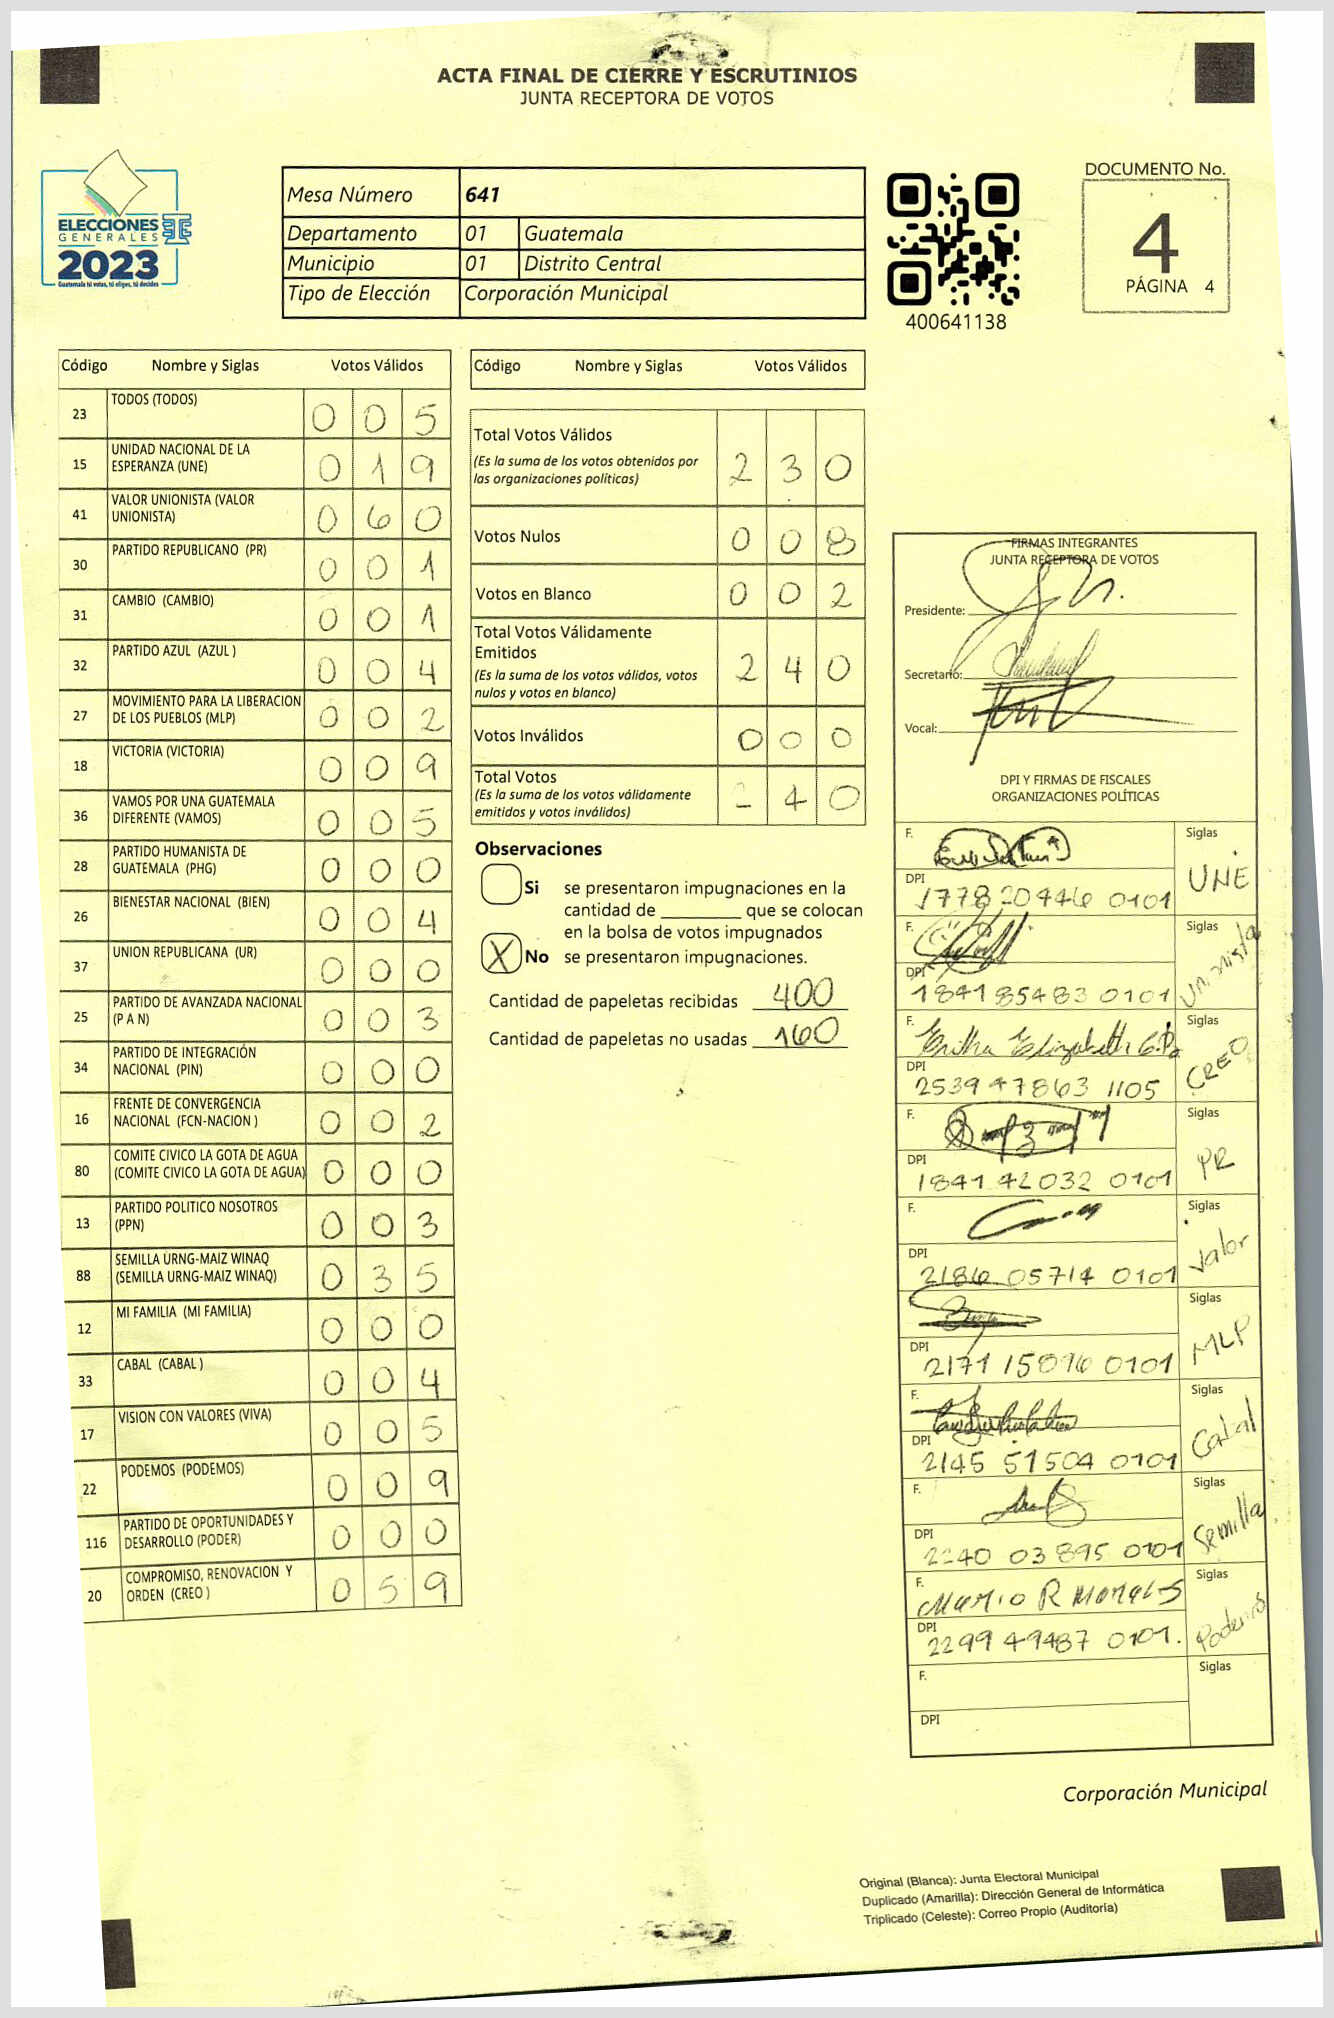 ACTA FINAL DE CIERRE Y ESCRUTINIOS
JUNTA RECEPTORA DE VOTOS
ELECCIONES
GENERALES
2023
Guatemala tú votas, tú eliges, tú decides
Mesa Número 641
Departamento 01 Guatemala
Municipio 01 Distrito Central
Tipo de Elección Corporación Municipal
400641138
DOCUMENTO No.
4
PÁGINA 4
Código Nombre y Siglas Votos Válidos
23 TODOS (TODOS) 0 0 5
15 UNIDAD NACIONAL DE LA ESPERANZA (UNE) 0 1 9
41 VALOR UNIONISTA (VALOR UNIONISTA) 0 6 0
30 PARTIDO REPUBLICANO (PR) 0 0 1
31 CAMBIO (CAMBIO) 0 0 1
32 PARTIDO AZUL (AZUL ) 0 0 4
27 MOVIMIENTO PARA LA LIBERACION DE LOS PUEBLOS (MLP) 0 0 2
18 VICTORIA (VICTORIA) 0 0 9
36 VAMOS POR UNA GUATEMALA DIFERENTE (VAMOS) 0 0 5
28 PARTIDO HUMANISTA DE GUATEMALA (PHG) 0 0 0
26 BIENESTAR NACIONAL (BIEN) 0 0 4
37 UNION REPUBLICANA (UR) 0 0 0
25 PARTIDO DE AVANZADA NACIONAL (P A N) 0 0 3
34 PARTIDO DE INTEGRACIÓN NACIONAL (PIN) 0 0 0
16 FRENTE DE CONVERGENCIA NACIONAL (FCN-NACION ) 0 0 2
80 COMITE CIVICO LA GOTA DE AGUA (COMITE CIVICO LA GOTA DE AGUA) 0 0 0
13 PARTIDO POLITICO NOSOTROS (PPN) 0 0 3
88 SEMILLA URNG-MAIZ WINAQ (SEMILLA URNG-MAIZ WINAQ) 0 3 5
12 MI FAMILIA (MI FAMILIA) 0 0 0
33 CABAL (CABAL ) 0 0 4
17 VISION CON VALORES (VIVA) 0 0 5
22 PODEMOS (PODEMOS) 0 0 9
116 PARTIDO DE OPORTUNIDADES Y DESARROLLO (PODER) 0 0 0
20 COMPROMISO, RENOVACION Y ORDEN (CREO ) 0 5 9
Código Nombre y Siglas Votos Válidos
Total Votos Válidos 2 3 0
(Es la suma de los votos obtenidos por
las organizaciones políticas)
Votos Nulos 0 0 8
Votos en Blanco 0 0 2
Total Votos Válidamente
Emitidos 2 4 0
(Es la suma de los votos válidos, votos
nulos y votos en blanco)
Votos Inválidos 0 0 0
Total Votos 2 4 0
(Es la suma de los votos válidamente
emitidos y votos inválidos)
Observaciones
Si se presentaron impugnaciones en la
cantidad de ________ que se colocan
en la bolsa de votos impugnados
X No se presentaron impugnaciones.
Cantidad de papeletas recibidas 400
Cantidad de papeletas no usadas 160
FIRMAS INTEGRANTES
JUNTA RECEPTORA DE VOTOS
Presidente:
Secretario:
Vocal:
DPI Y FIRMAS DE FISCALES
ORGANIZACIONES POLÍTICAS
F. Siglas UNE
DPI 1778 20446 0101
F. Siglas Unionista
DPI 1841 85483 0101
F. Erika Elizabeth G.P. Siglas CREO
DPI 2539 47863 1105
F. Siglas PR
DPI 1841 42032 0101
F. Siglas Valor
DPI 2186 05714 0101
F. Siglas MLP
DPI 2171 15096 0101
F. Siglas Cabal
DPI 2145 51504 0101
F. Siglas Semilla
DPI 2240 03895 0101
F. Mario R Morales Siglas Podemos
DPI 2299 49487 0101.
F. Siglas
DPI
Corporación Municipal
Original (Blanca): Junta Electoral Municipal
Duplicado (Amarilla): Dirección General de Informática
Triplicado (Celeste): Correo Propio (Auditoría)